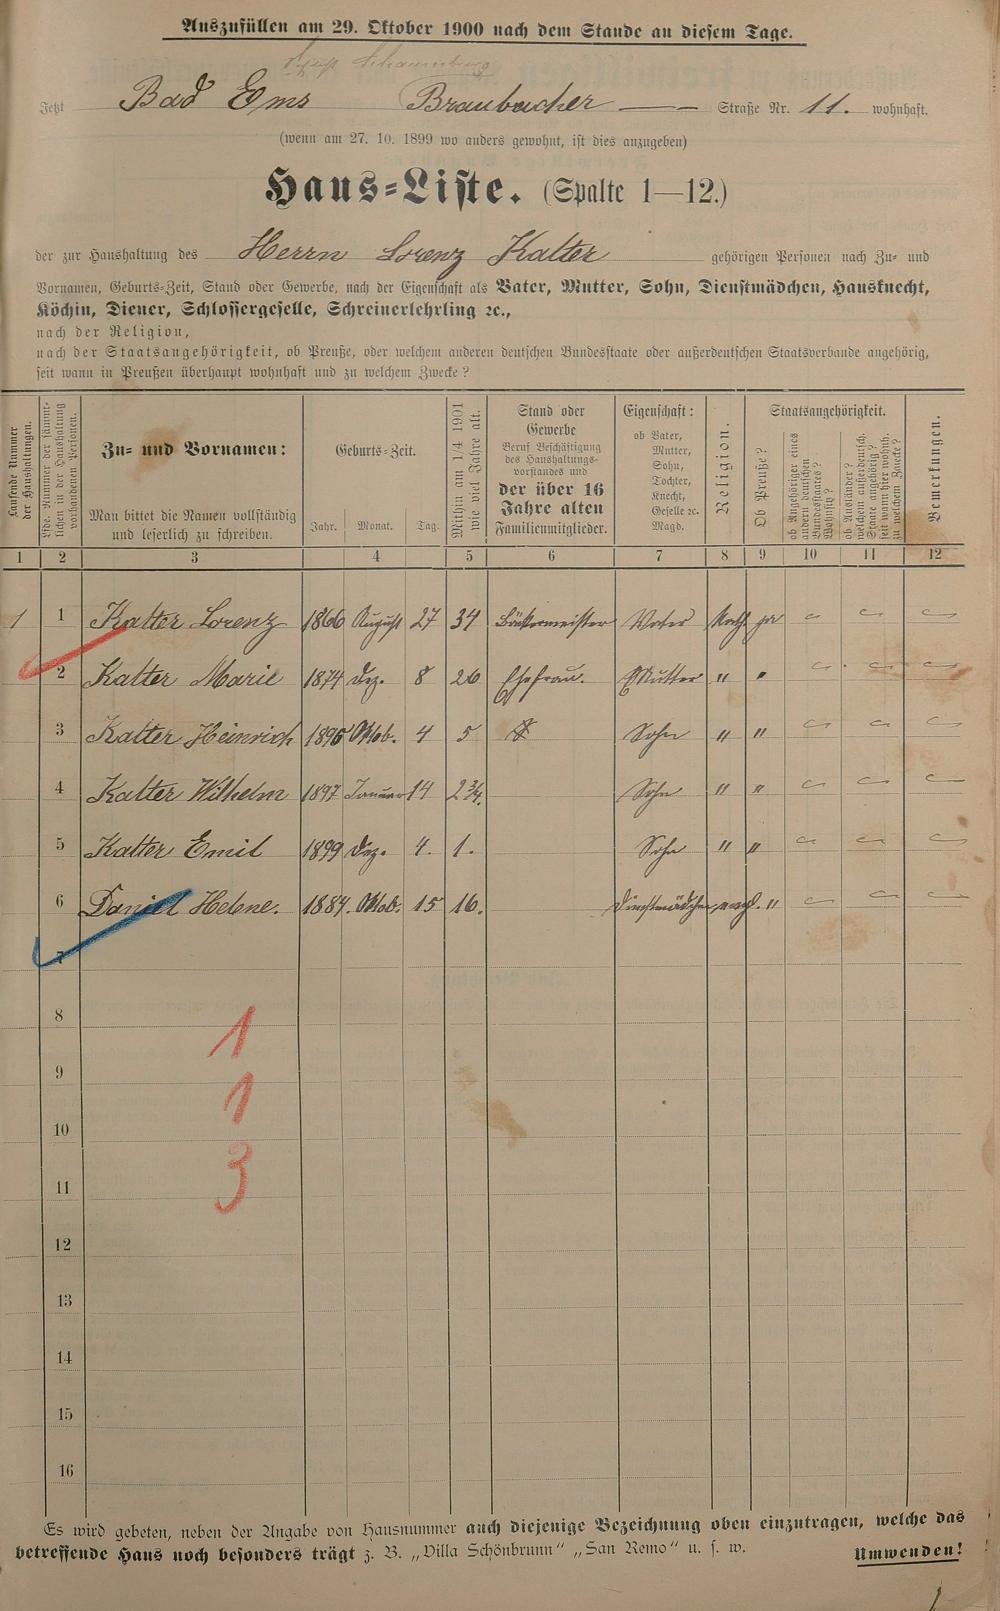 Auszufüllen am 29. Oktober 1900 nach dem Stande an diesem Tage.
Schaumburg
Jetzt Bad Ems Braubacher — Straße Nr. 11. wohnhaft.
(wenn am 27. 10. 1899 wo anders gewohnt, ist dies anzugeben)
Haus-Liste. (Spalte 1—12.)
der zur Haushaltung des Herrn Lorenz Kalter gehörigen Personen nach Zu- und
Vornamen, Geburts-Zeit, Stand oder Gewerbe, nach der Eigenschaft als Vater, Mutter, Sohn, Dienstmädchen, Hausknecht,
Köchin, Diener, Schlossergeselle, Schreinerlehrling ꝛc.,
nach der Religion,
nach der Staatsangehörigkeit, ob Preuße, oder welchem anderen deutschen Bundesstaate oder außerdeutschen Staatsverbande angehörig,
seit wann in Preußen überhaupt wohnhaft und zu welchem Zwecke?
Laufende Nummer der Haushaltungen.
Lfde. Nummer der sämmtlichen in der Haushaltung vorhandenen Personen.
Zu- und Vornamen:
Man bittet die Namen vollständig
und leserlich zu schreiben.
Geburts-Zeit.
Jahr. Monat. Tag.
Mithin am 1/4 1901 wie viel Jahre alt.
Stand oder
Gewerbe
Beruf Beschäftigung
des Haushaltungs-
vorstandes und
der über 16
Jahre alten
Familienmitglieder.
Eigenschaft:
ob Vater,
Mutter,
Sohn,
Tochter,
Knecht,
Geselle ꝛc.
Magd.
Religion.
Staatsangehörigkeit.
Ob Preuße?
ob Angehöriger eines andern deutschen Bundesstaates? Wohnsitz?
ob Ausländer? welchem außerdeutsch. Staate angehörig? seit wann hier wohnh. zu welchem Zwecke?
Bemerkungen.
1 2 3 4 5 6 7 8 9 10 11 12
1 1 Kalter Lorenz 1866 August 27 34 Bäckermeister Vater Kath. ja
2 Kalter Marie 1874 Dez. 8 26 Ehefrau. Mutter " "
3 Kalter Heinrich 1895 Oktob. 4 5 Sohn " "
4 Kalter Wilhelm 1897 Januar 14 2 3/4. Sohn " "
5 Kalter Emil 1899 Dez. 4. 1. Sohn " "
6 Daniel Helene. 1884. Oktob. 15 16. Dienstmädchen evgl. "
7
8
1
9
1
10
3
11
12
13
14
15
16
Es wird gebeten, neben der Angabe von Hausnummer auch diejenige Bezeichnung oben einzutragen, welche das
betreffende Haus noch besonders trägt z. B. „Villa Schönbrunn“ „San Remo“ u. s. w.
Umwenden!